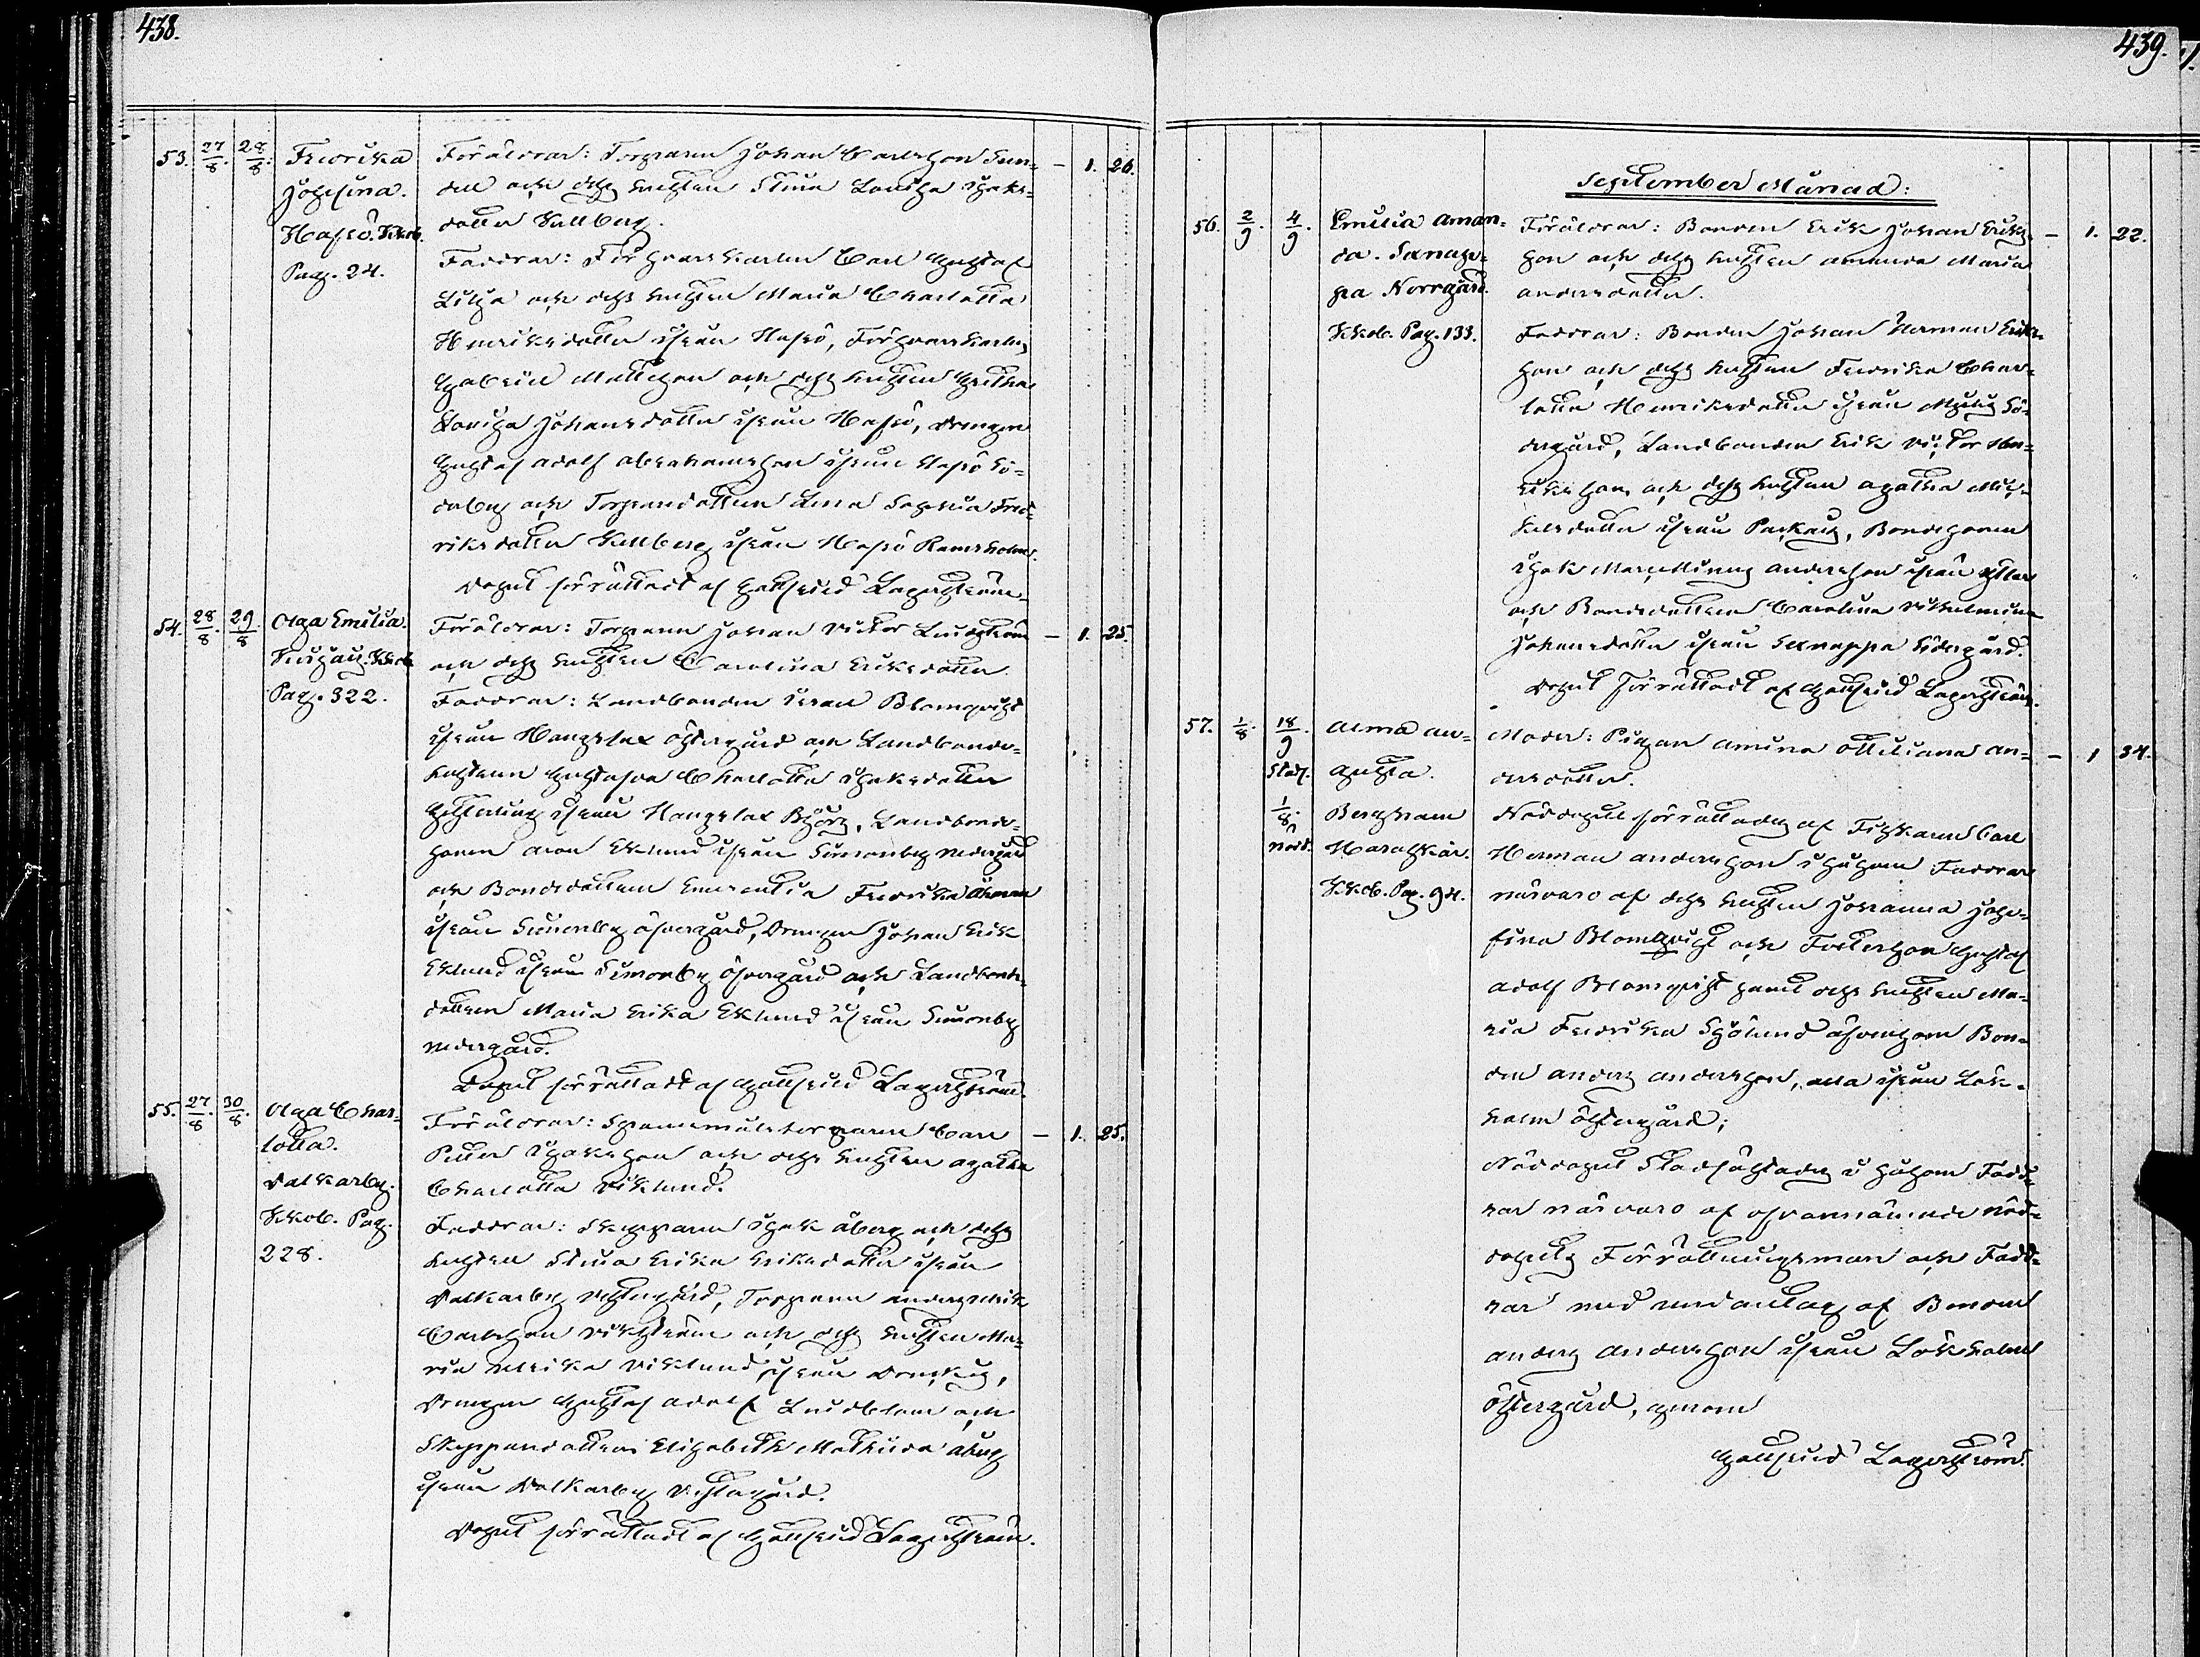 438.
53. 27/8. 28/8. Fredrika Föräldrar: Torparen Johan Carlsson Sun- — 1. 26.
Josefina. dell och dess hustru Stina Lovisa Isaks-
Hafsö. Kkob. dotter Kullberg.
Pag. 24. Faddrar: Försvarskarlen Carl Gustaf
Lilja och dess hustru Maria Charlotta
Henriksdotter ifrån Hafsö, Försvarskarlen
Gabriel Mattsson och dess hustru Gretha
Lovisa Johansdotter ifrån Hafsö, drengen
Gustaf Adolf Abrahamsson ifrån Hafsö Sö-
derby och Torparedottren Lina Sophia Fred-
riksdotter Kullberg ifrån Hafsö Ramsholm.
Dopet förrättadt af Gottfrid Lagerström.
54. 28/8. 29/8 Olga Emilia. Föräldrar: Torparen Johan Victor Lindström — 1. 25.
Kkob. och dess hustru Carolina Eriksdotter.
Pag. 322. Faddrar: Landbonden Blomqvist
ifrån Hangslax Östergård och Landbonde-
hustrun Gustafva Charlotta Isaksdotter
ifrån Hangslax Björs, Landbonde-
sonen Eklund ifrån Simonby Nedergård
och Bondedottren Emerentia Fredrika Öhman
ifrån Simonby Öfvergård, Drengen Johan Erik
Eklund ifrån Simonby Öfvergård och Landbonde-
dottren Maria Erika Eklund ifrån Simonby
Nedergård.
Dopet förrättadt af Gottfrid Lagerström.
55. 27/8. 30/8. Olga Char- Föräldrar: Spanmålstorparen Carl — 1. 25.
lotta. Petter Isaksson och dess hustru Agatha
Valkarby. Charlotta Viklund.
Kkob. Pag. Faddrar: Skepparen Isak Åberg och dess
228. hustru Stina Erika Eriksdotter ifrån
Valkarby Vestergård, Torparen Anders Erik
Carlsson Vikström och dess hustru Ma-
ria Ulrika Viklund, ifrån
Drengen Gustaf Adolf Lindblom och
Skepparedottren Elisabeth Mathilda Åberg
ifrån Valkarby Vestergård.
Dopet förrättadt af Gottfrid Lagerström.
439.
September Månad:
56. 2/9. 4/9 Emilia Aman- Föräldrar: Bonden Erik Johan Eriks- — 1. 22.
da. son och dess hustru Amanda Maria
Norrgård. Andersdotter.
Kkob. Pag. 133. Faddrar: Bonden Johan Herman Eriks-
son och dess hustru Fredrika Char-
lotta Henriksdotter ifrån Sö-
dergård, Landbonden Erik Victor Hen-
riksson och dess hustru Agatha Mic-
kelsdotter ifrån Parkas, Bondesonen
Isak Marcellinus Andersson ifrån
och Bondedottren Carolina Vilhelmina
Johansdotter ifrån Södergård.
Dopet förrättadt af Gottfrid Lagerström.
57. 1/8. 18/9 Alma Au- Moder: Pigan Amina Ottiliana An- — 1 34.
Stadf. gusta. dersdotter.
1/8. Bergham Nöddopet förrättades af Fiskaren Carl
nödd. Haraskär. Herman Andersson i följande Faddrars
Kkob. Pag. 94. närvaro af dess hustru Johanna Jose-
fina Blomqvist och Torparson Gustaf
Adolf Blomqvist samt dess hustru Ma-
ria Fredrika Sjölund äfvensom Bon-
den Anders Andersson, alla ifrån Lök-
holm Östergård;
Nöddopet Stadfästades i följande Fadd-
rars närvaro af ofvannämnde nöd-
dopets Förrättningsman och Fadd-
rar med undantag af Bonden
Anders Andersson ifrån Lökholm
Östergård, genom
Gottfrid Lagerström.